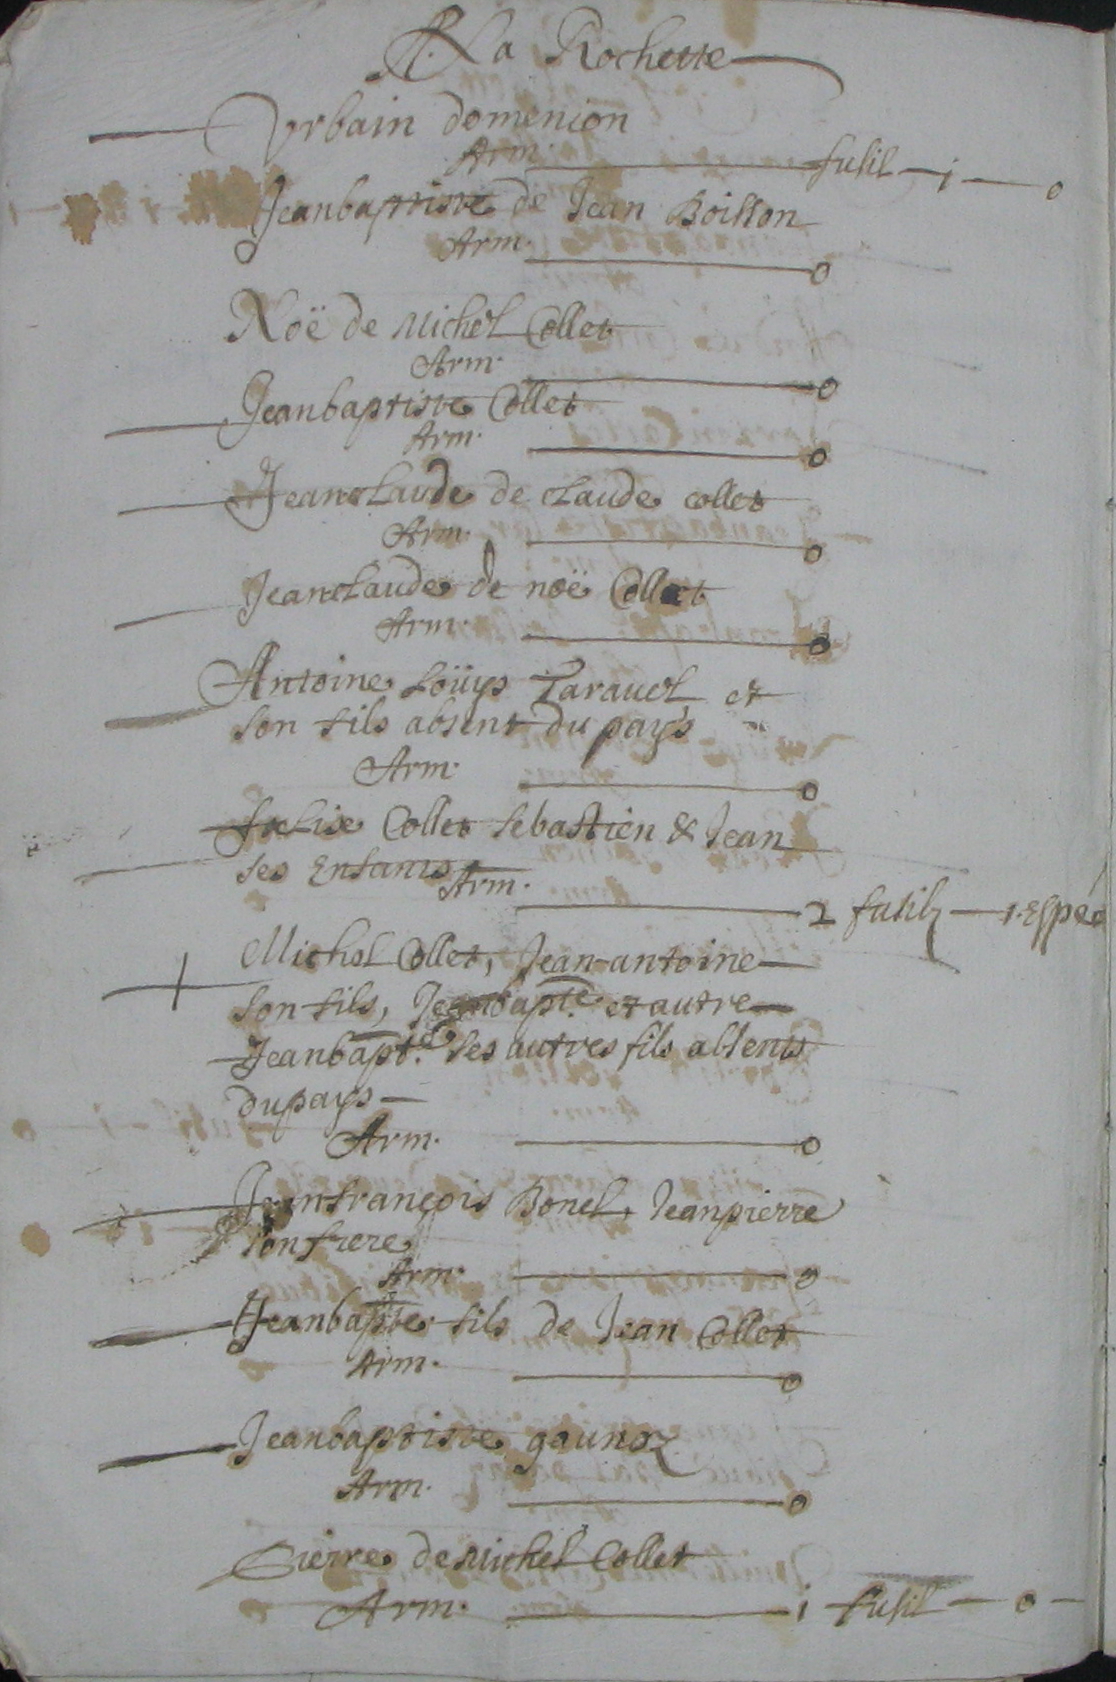 A. La Rochette
Urbain domenion
Arm. fusil 1 0
Jeanbaptiste de Jean Boisson
Arm. 0
Noë de Michel Collet
Arm. 0
Jeanbaptiste Collet
Arm. 0
Jeanclaude de claude collet
Arm. 0
Jeanclaude de noë Collet
Arm. 0
Antoine Loüys Taravel et
son fils absent du pays
Arm. 0
foelise Collet Sebastien & Jean
ses Enfants
Arm. 2 fusilz 1. Espée
Michel Collet, Jean-antoine
son fils, Jeanbapte. et autre
Jeanbapte. ses autres fils absents
du pays
Arm. 0
Jeanfrançois Bonel, Jeanpierre
son frere
Arm. 0
Jeanbapte fils de Jean Collet
Arm. 0
Jeanbaptiste gaunoz
Arm. 0
Pierre de Michel Collet
Arm. 1 fusil 0